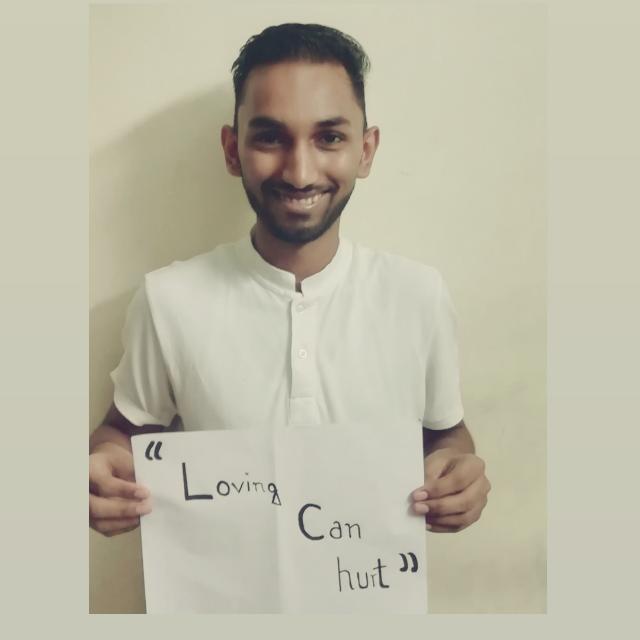 “ Loving
Can
hurt ”